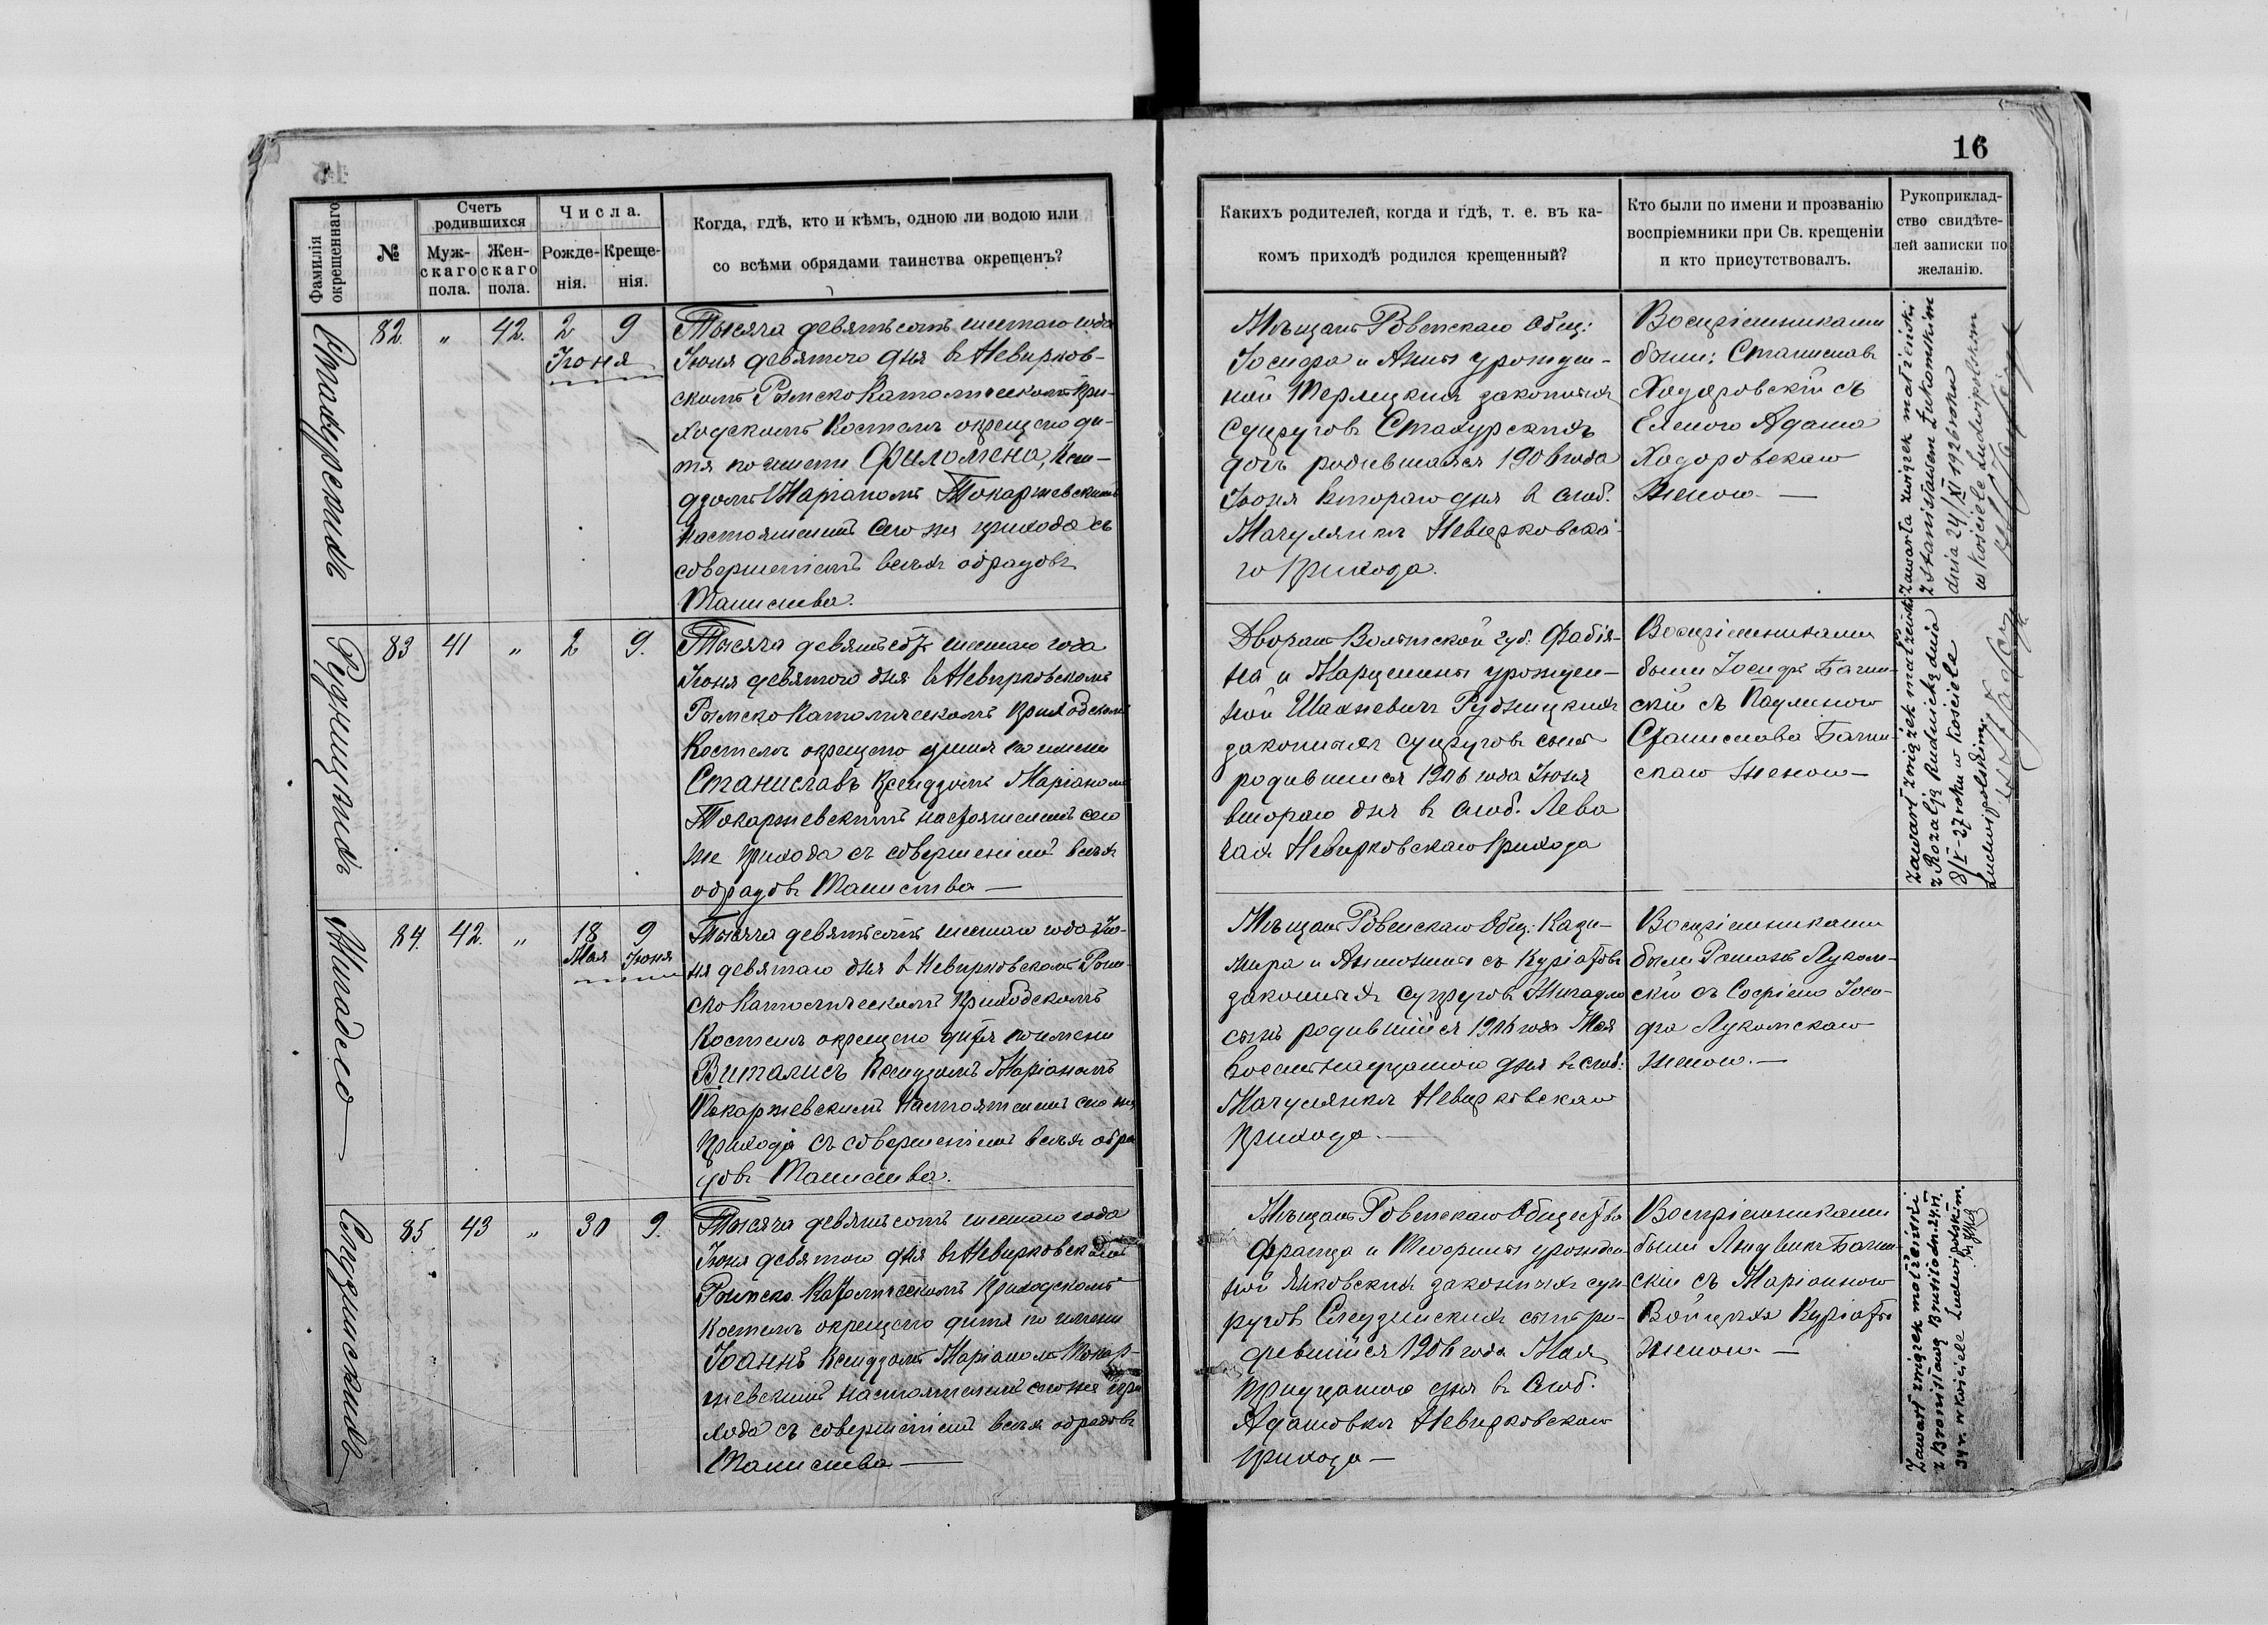 16
Фамилія окрещеннаго
№
Счетъ родившихся
Мужскаго пола.
Женскаго пола.
Числа.
Рожденія.
Крещенія.
Когда, гдѣ, кто и кѣмъ, одною ли водою или
со всѣми обрядами таинства окрещенъ?
Какихъ родителей, когда и гдѣ, т. е. въ ка-
комъ приходѣ родился крещенный?
Кто были по имени и прозванію
воспріемники при Св. крещеніи
и кто присутствовалъ.
Рукоприклад-
ство свидѣте-
лей записки по
желанію.
82. " 42. 2 9
Іюня
Тысяча девятьсотъ шестаго года
Іюня девятаго дня въ Невирков-
скомъ Римско Католическомъ При-
ходскомъ Костелѣ окрещено ди-
тя по имени Филомена, Ксен-
дзомъ Маріаномъ Токаржевскимъ
Настоятелемъ сего же прихода съ
совершеніемъ всѣхъ обрядовъ
Таинства.
Мѣщанъ Ровенскаго Общ:
Іосифа и Анны урожден-
ной Терлецкихъ законныхъ
Супруговъ
дочь родившаяся 1906 года
Іюня втораго дня въ слоб.
Мачулянкѣ Невирковска-
го Прихода.
Воспріемниками
были: Станиславъ
Ходоровскій съ
Еленою Адама
Ходоровскаго
Женою. —
Zawarła związek małżeński
z Stanisławem Łukomskim
dnia 24/XI 1926 roku
w Kościele Ludwipolskim
Рудницкихъ
83 41 " 2 9.
Тысяча девятьсотъ шестаго года
Іюня девятаго дня въ Невирковскомъ
Римско Католическомъ Приходскомъ
Костелѣ окрещено дитя по имени
Станиславъ Ксендзомъ Маріаномъ
Токаржевскимъ настоятелемъ сего
же прихода съ совершеніемъ всѣхъ
обрядовъ Таинства —
Дворянъ Волынской губ. Фабія-
на и Марцелины урожден-
ной Шахневичъ Рудницкихъ
законныхъ супруговъ сынъ
родившійся 1906 года Іюня
втораго дня въ слоб. Лева
чахъ Невирковскаго Прихода
Воспріемниками
были Іосифъ Багин-
скій съ Паулиною
Станислава Багин-
скаго Женою —
Zawarł związek małżeński
z Rozalją Rudnicką dnia
8/V-27 roku w Kościele
Ludwipolskim
Жигадло —
84. 42. " 18 9
Мая Іюня
Тысяча девятьсотъ шестаго года Ію-
ня девятаго дня въ Невирковскомъ Рим-
ско Католическомъ Приходскомъ
Костелѣ окрещено дитя по имени
Виталисъ Ксендзомъ Маріаномъ
Токаржевскимъ Настоятелемъ сего же
Прихода съ совершеніемъ всѣхъ обря
довъ Таинства.
Мѣщанъ Ровенскаго Общ: Кази-
мира и Антонины съ Куріатовъ
законныхъ Супруговъ Жигадло
сынъ родившійся 1906 года Мая
восемнадцатаго дня въ слоб:
Мачулянкѣ Невирковскаго
Прихода. —
Воспріемниками
были Романъ Луком-
скій съ Софіею Іоси-
фа Лукомскаго
женою. —
85 43 " 30 9.
Тысяча девятьсотъ шестаго года
Іюня девятаго дня въ Невирковскомъ
Римско Католическомъ Приходскомъ
Костелѣ окрещено дитя по имени
Іоаннъ Ксендзомъ Маріаномъ Токар-
жевскимъ настоятелемъ сего же при
хода съ совершеніемъ всѣхъ обрядовъ
Таинства —
Мѣщанъ Ровенскаго Общества
Франца и урожден-
ной Янковскихъ законныхъ суп-
руговъ сынъ ро-
дившійся 1906 года Мая
тридцатаго дня въ Слоб.
Адамовкѣ Невирковскаго
Прихода —
Воспріемниками
были Людвикъ Багин-
скій съ Маріанною
Войцѣха Куріаты
женою. —
Zawarł związek małżeński
z Bronisławą Brusiło dn. 24.VI.
34 r. w Kościele Ludwipolskim.